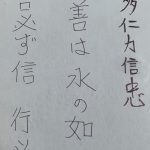 多仁力信忠
善は水の如
必ず信 行